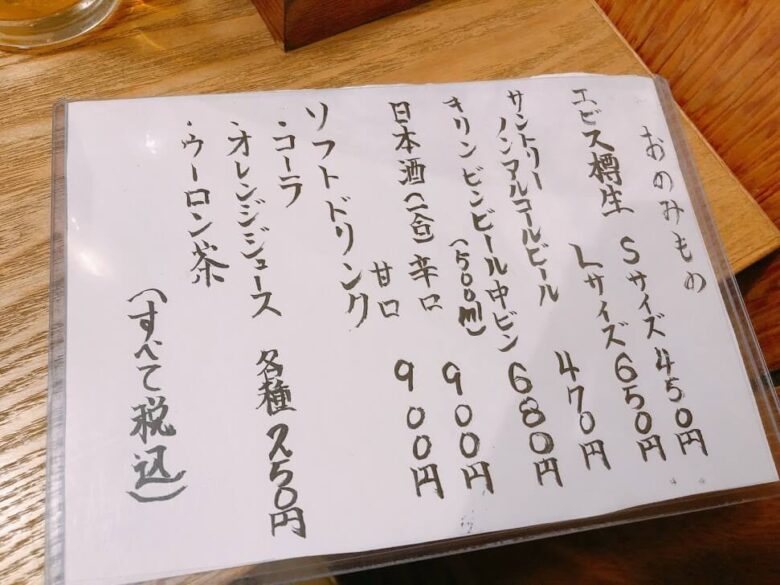 おのみもの
エビス樽生 Sサイズ 450円
Lサイズ 650円
サントリー
ノンアルコールビール 470円
キリンビンビール中ビン 680円
(500ml)
日本酒(二合)辛口 900円
甘口 900円
ソフトドリンク
・コーラ
・オレンジジュース 各種 250円
・ウーロン茶
(すべて税込)